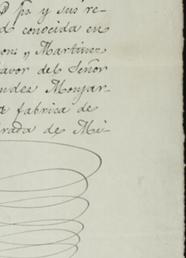 D pp y sus re-
d conocida en
oni y Martinez
favor del Señor
endez Monjar-
a fabrica de
rada de Mi-